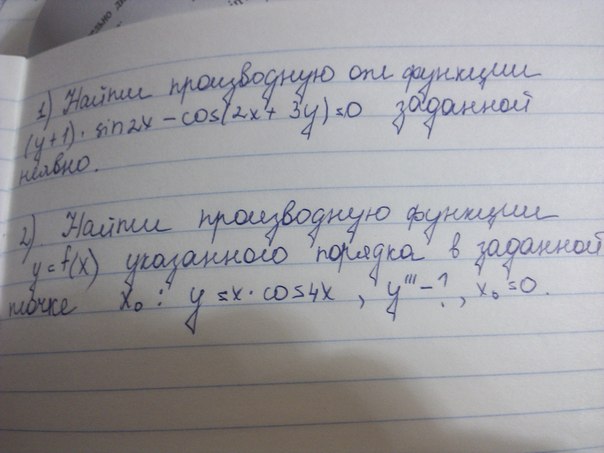 1) Найти производную от функции
(y+1) · sin2x - cos(2x + 3y) = 0 заданной
неявно.
2) Найти производную функции
y = f(x) указанного порядка в заданной
точке x₀ : y = x · cos4x , y''' - ? , x₀ = 0.